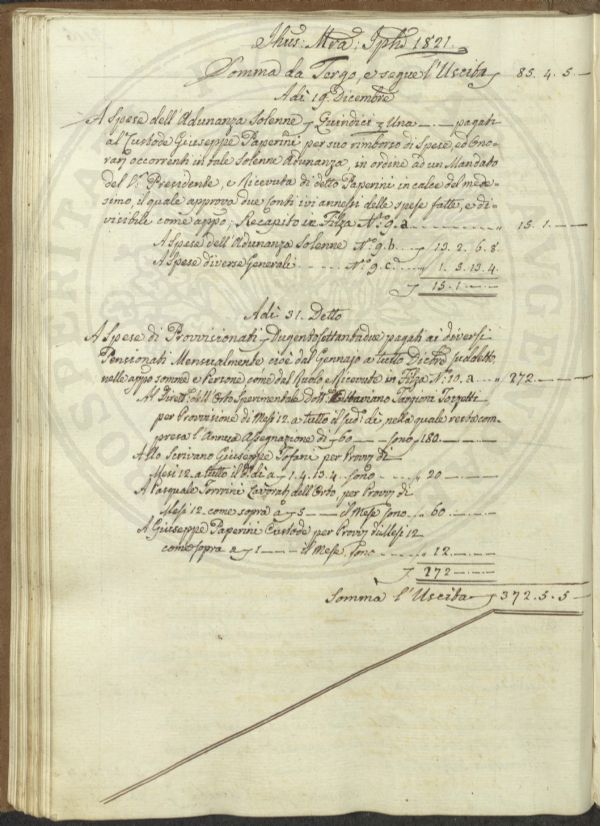 Jhus: Mra: Jph: 1821.
Somma da Tergo, e segue l'Uscita ƒ 85. 4. 5
Adi 19. Dicembre
A Spese dell'Adunanza Solenne ƒ Quindici e Una pagati
al Custode Giuseppe Paperini per suo rimborzo di Spese, ed Ono-
rarj occorrenti in tale Solenne Adunanza, in ordine ad un Mandato
del Sr. Presidente, e Ricevuta di detto Paperini in calce del mede-
simo, il quale approva due Conti ivi annessi delle spese fatte, e di-
visibile come appo; Recapito in Filza No. 9. a " 15. 1.
A Spese dell'Adunanza Solenne No. 9. b ƒ 13. 2. 6. 8
A Spese diverse Generali No. 9. c " 1. 5. 13. 4
ƒ 15. 1.
Adi 31. Detto
A Spese di Provvisionati ƒ Dugentosettantadue pagati ai diversi
Pensionati Mensualmente cioè dal Gennajo a tutto Dicbre suddetto
nelle appo somme e Persone come dal Ruolo e Ricevute in Filza No. 10. a " 272
Al Dirett. dell'Orto Sperimentale Dott. Ottaviano Targioni Tozzetti
per Provvisione di Mesi 12. a tutto il sud. dì, nella quale resta com-
presa l'Annua Assegnazione di ƒ 60 sono ƒ 180.
Allo Scrivano Giuseppe Tofani per Provv. di
Mesi 12. a tutto il dì a ƒ 1. 4. 13. 4. sono " 20
A Pasquale Torrini Lavorate dell'Orto per Provv. di
Mesi 12. come sopra a ƒ 5 il Mese sono " 60.
A Giuseppe Paperini Custode per Provv. di Mesi 12
come sopra a ƒ 1 il Mese sono " 12.
ƒ 272
Somma l'Uscita ƒ 372. 5. 5